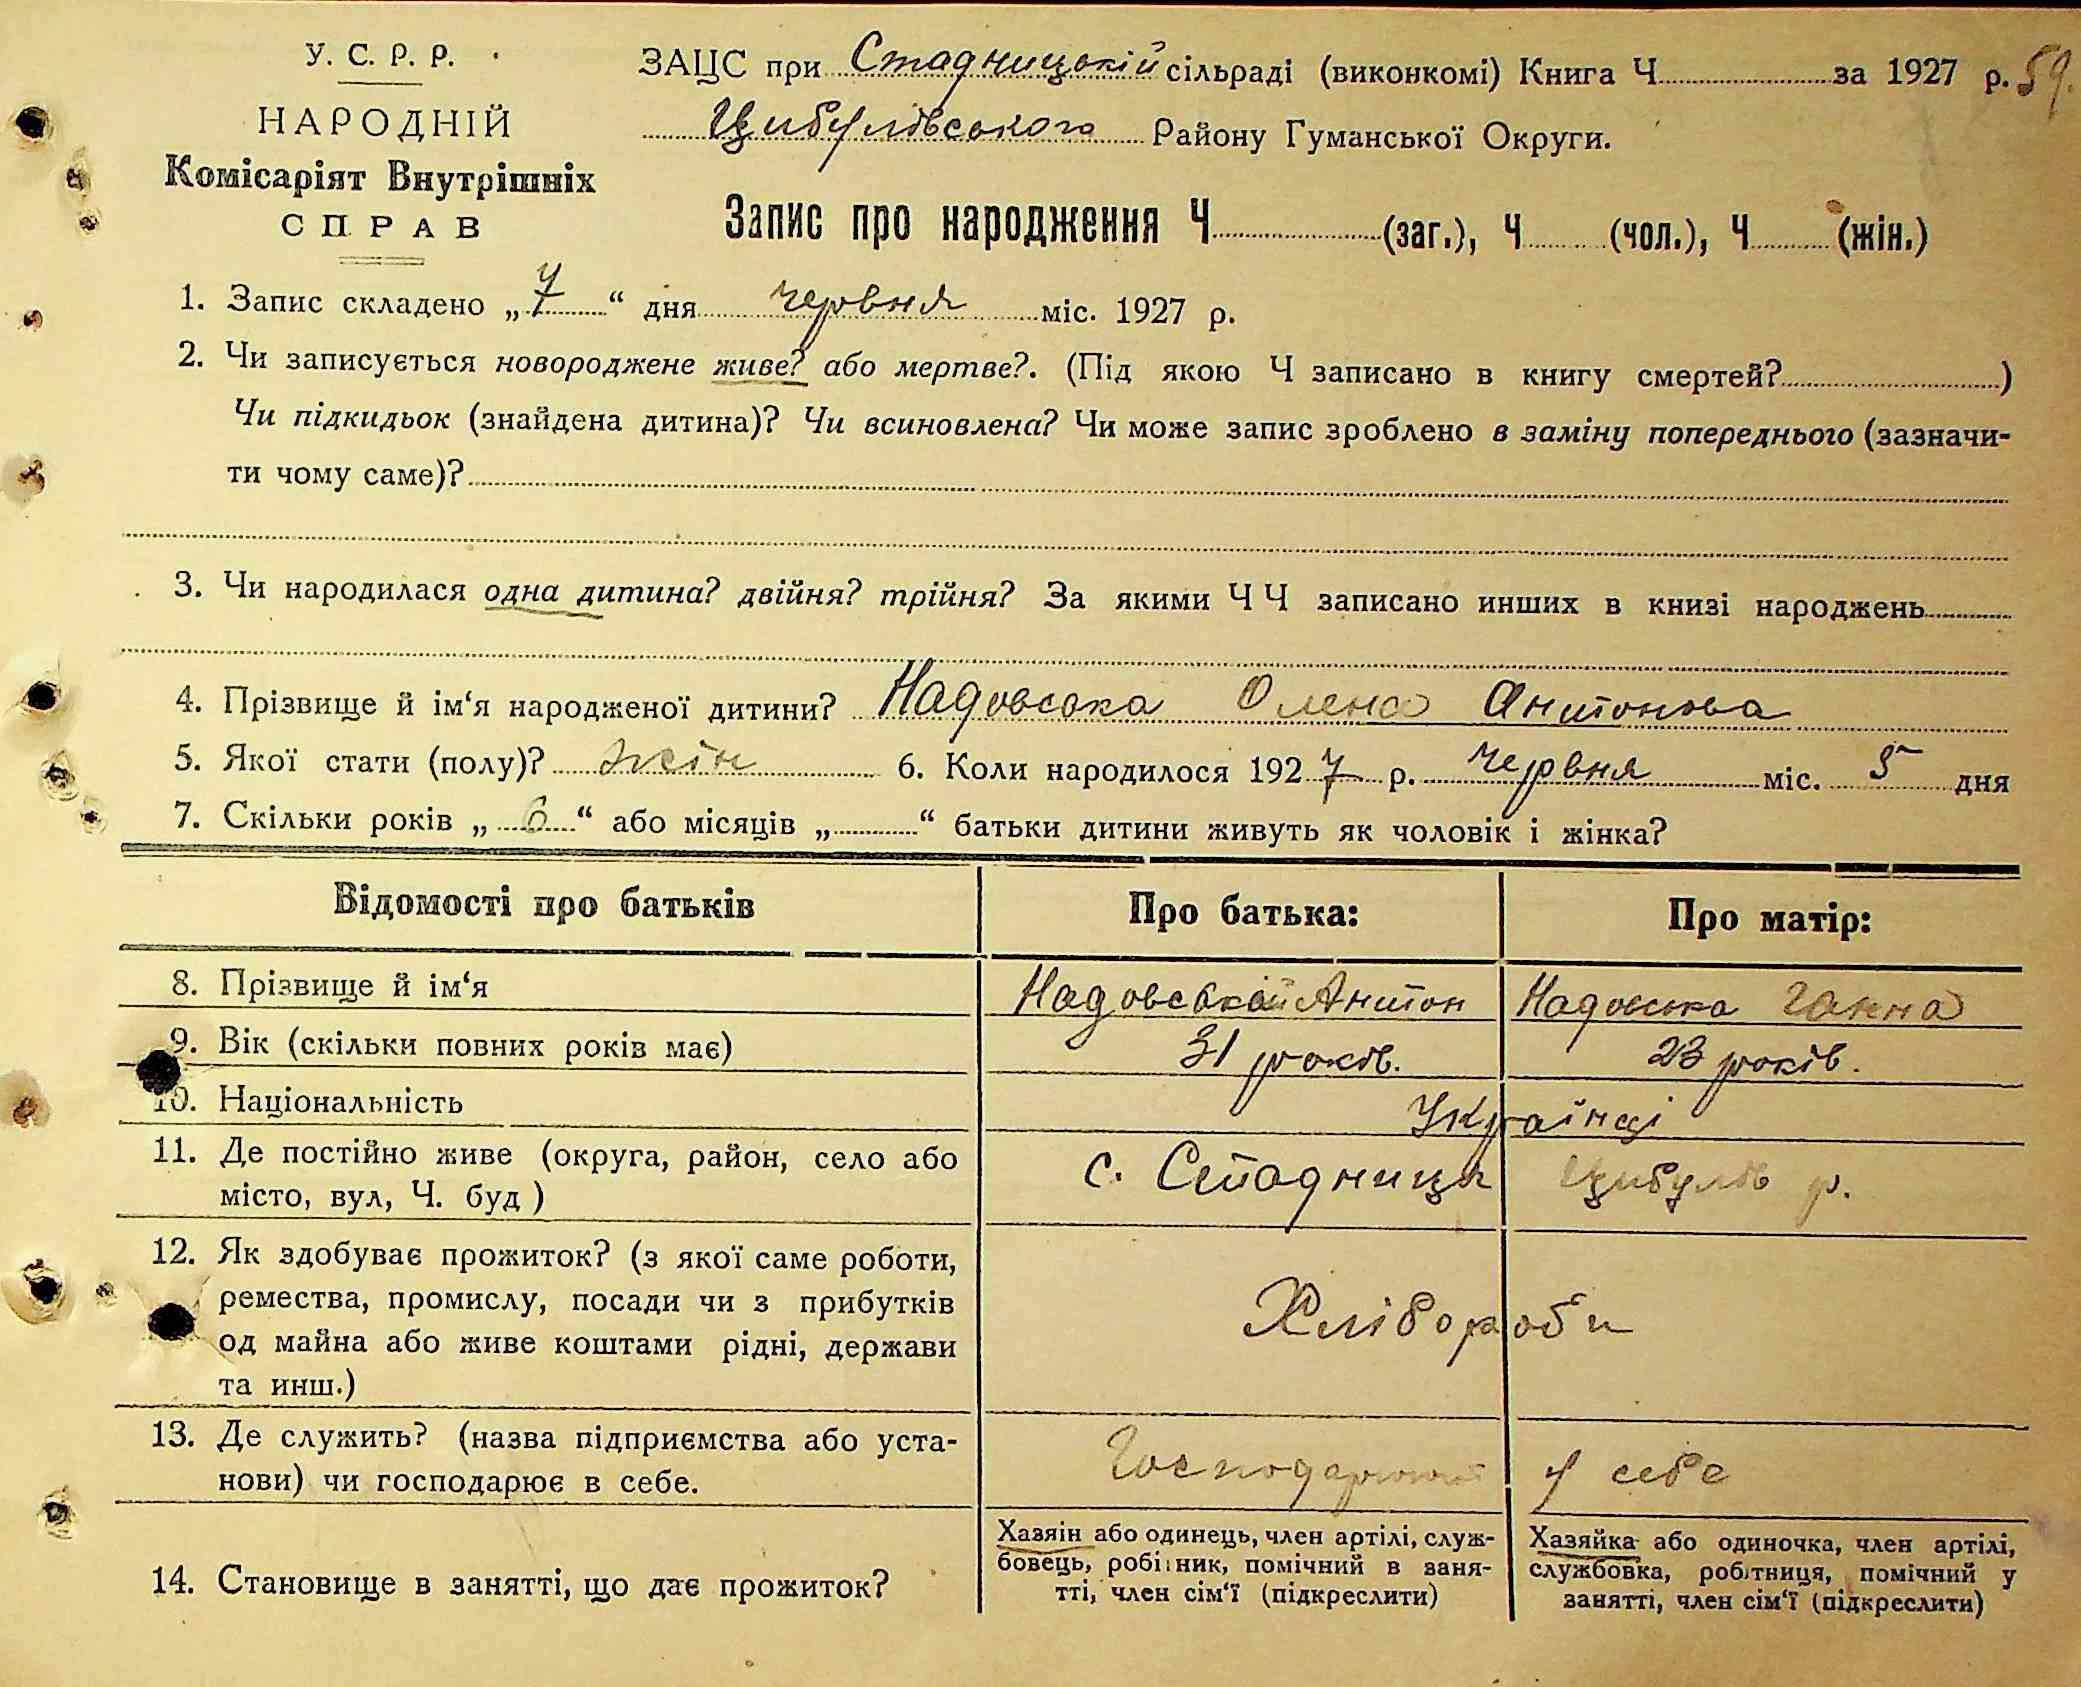 У. С. Р. Р.
НАРОДНІЙ
Комісаріят Внутрішніх
СПРАВ
ЗАЦС при Стадницькій сільраді (виконкомі) Книга Ч за 1927 р. 59.
Цибулівського Району Гуманської Округи.
Запис про народження Ч (заг.), Ч (чол.), Ч (жін.)
1. Запис складено „7“ дня червня міс. 1927 р.
2. Чи записується новороджене живе? або мертве?. (Під якою Ч записано в книгу смертей? )
Чи підкидьок (знайдена дитина)? Чи всиновлена? Чи може запис зроблено в заміну попереднього (зазначи-
ти чому саме)?
3. Чи народилася одна дитина? двійня? трійня? За якими ЧЧ записано инших в книзі народжень
4. Прізвище й ім‘я народженої дитини? Надовська Олена Антонова
5. Якої стати (полу)? жін 6. Коли народилося 1927 р. червня міс. 5 дня
7. Скільки років „6“ або місяців „ “ батьки дитини живуть як чоловік і жінка?
Відомості про батьків Про батька: Про матір:
8. Прізвище й ім‘я Надовський Антон Надовська Ганна
9. Вік (скільки повних років має) 31 років. 23 років.
10. Національність Українці
11. Де постійно живе (округа, район, село або
місто, вул, Ч. буд ) с. Стадниця Цибулів р.
12. Як здобуває прожиток? (з якої саме роботи,
ремества, промислу, посади чи з прибутків
од майна або живе коштами рідні, держави
та инш.)
Хлібороби
13. Де служить? (назва підприємства або уста-
нови) чи господарює в себе. Господарюют у себе
14. Становище в занятті, що дає прожиток?
Хазяін або одинець, член артілі, служ-
бовець, робітник, помічний в заня-
тті, член сім‘ї (підкреслити)
Хазяйка або одиночка, член артілі,
службовка, робітниця, помічний у
занятті, член сім‘ї (підкреслити)